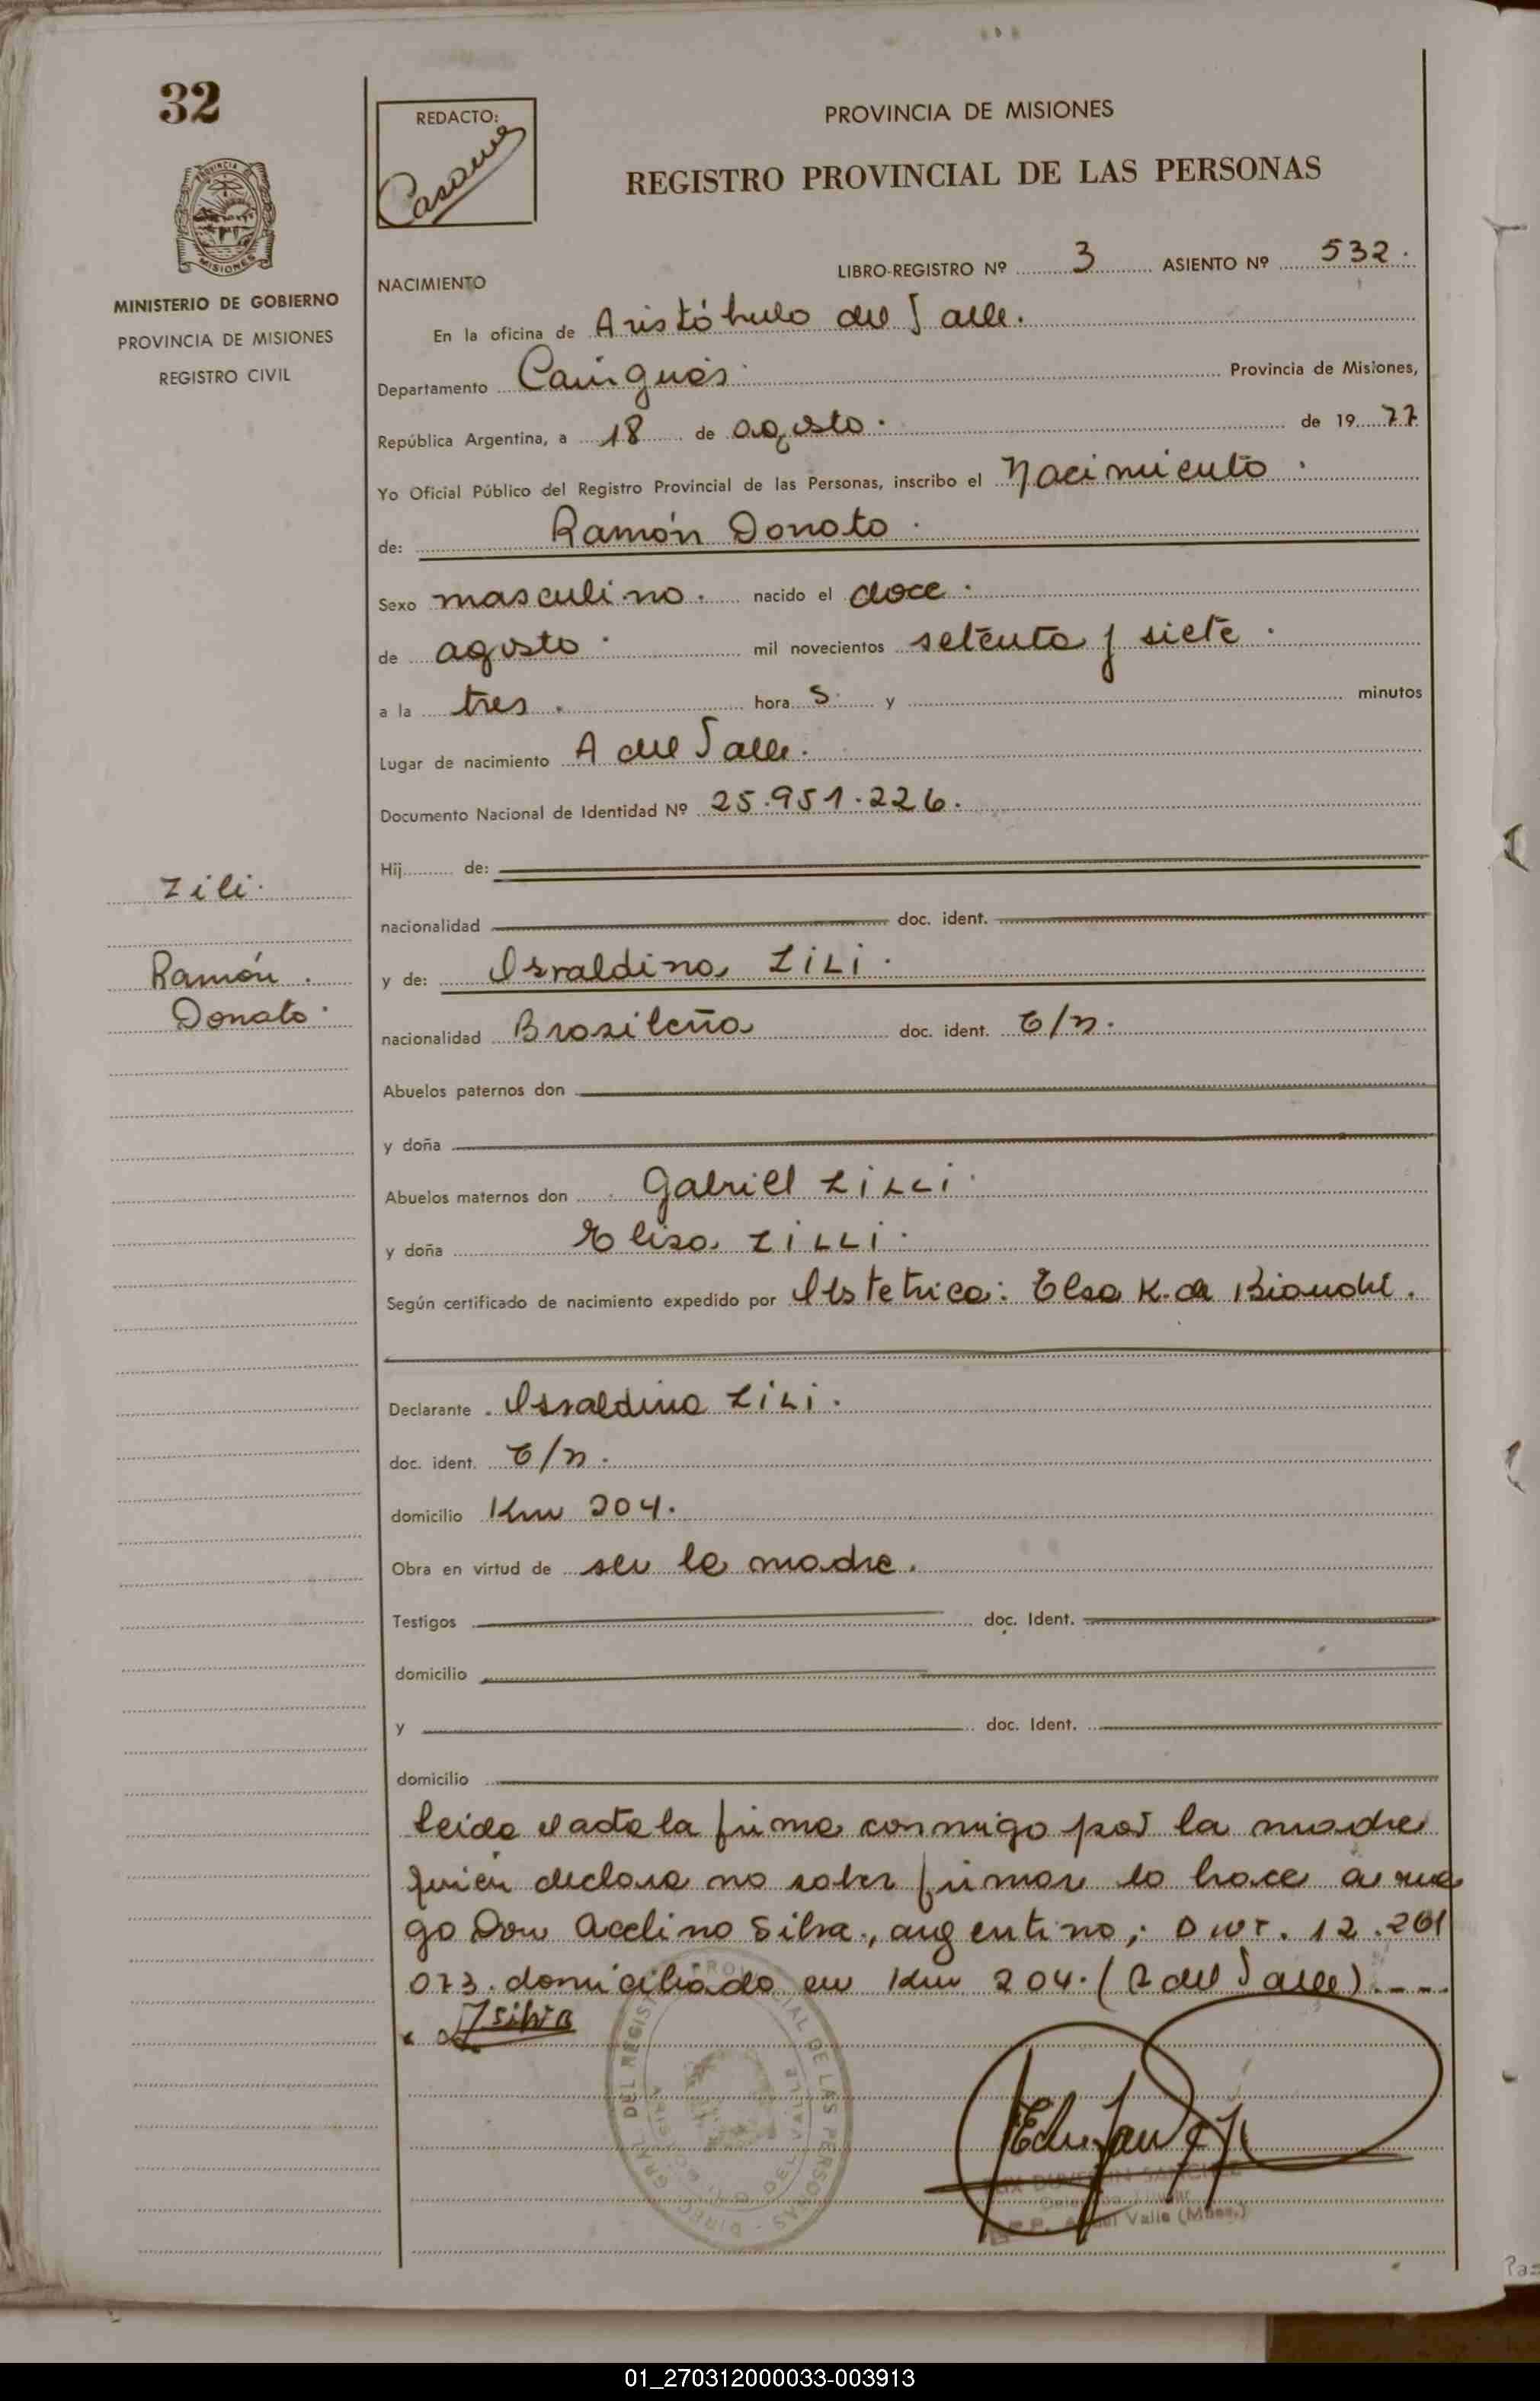 32
REDACTO:
PROVINCIA DE MISIONES
REGISTRO PROVINCIAL DE LAS PERSONAS
MISIONES
MINISTERIO DE GOBIERNO
PROVINCIA DE MISIONES
REGISTRO CIVIL
LIBRO-REGISTRO Nº 3 ASIENTO Nº 532.
NACIMIENTO
En la oficina de Aristóbulo del Valle.
Departamento Cainguás. Provincia de Misiones,
República Argentina, a 18 de agosto. de 19 77
Yo Oficial Público del Registro Provincial de las Personas, inscribo el Nacimiento.
de: Ramón Donato.
Sexo masculino. nacido el doce.
de agosto. mil novecientos setenta y siete.
a la tres. hora s. y minutos
Lugar de nacimiento A del Valle.
Documento Nacional de Identidad Nº 25.951.226.
Hij de:
Zili.
nacionalidad doc. ident.
Ramón.
y de: Israldina ZiLi.
Donato.
nacionalidad Brasileña doc. ident. C/n.
Abuelos paternos don
y doña
Abuelos maternos don Gabriel ZiLLi.
y doña Elisa ZiLLi.
Según certificado de nacimiento expedido por Obstetrica: Elsa K. de Bianchi.
Declarante Israldina ZiLi.
doc. ident. C/n.
domicilio Km 204.
Obra en virtud de ser la madre.
Testigos doc. Ident.
domicilio
y doc. Ident.
domicilio
leida el acta la firma conmigo por la madre
quién declara no saber firmar lo hace a rue
go Don Acelino Silva, argentino; D.N.I. 12.261
073. domiciliado en Km 204. (A del Valle).---
Silva
DIREC. GRAL. DEL REGIST. PROVINCIAL DE LAS PERSONAS
DEL VALLE
del Valle (Mnes.)
01_270312000033-003913